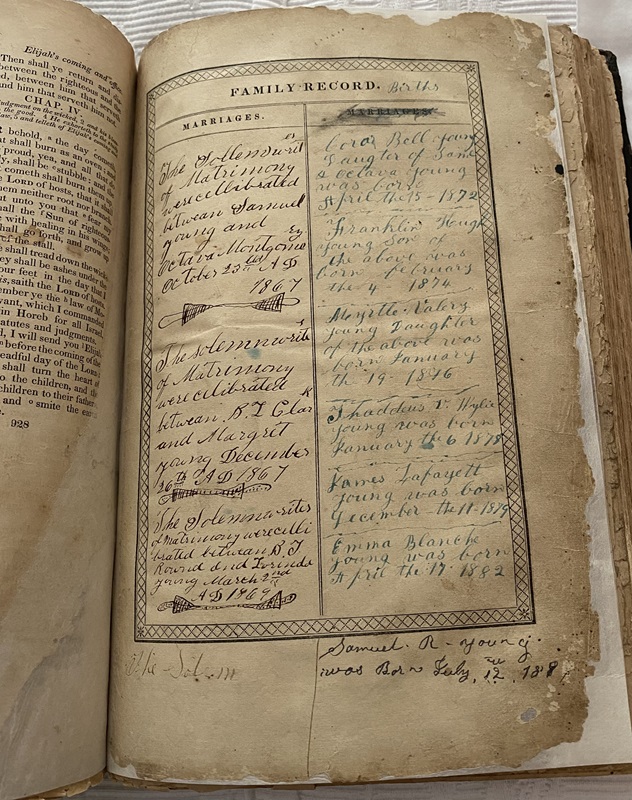 Elijah's coming and office.
Then shall ye return and
between the righteous and the
d, between him that
and him that serveth him not.
CHAP. IV.
judgment on the wicked,
the good. 4 He exhorteth
law, 5 and telleth of Elijah's
behold, a the day cometh
at shall burn as an oven;
proud, yea, and all that do
y, shall be stubble: and the
cometh shall burn them up,
LORD of hosts, that it shall
them neither root nor branch.
unto you that fear my
all the Sun of righteous
with healing in his wings;
hall go forth, and grow up
of the stall.
e shall tread down the wicked
y shall be ashes under the
our feet in the day that I
is, saith the LORD of hosts.
ember ye the law of Moses
vant, which I commanded
in Horeb for all Israel,
tatutes and judgments.
d, I will send you Elijah
before the coming of the
readful day of the LORD:
shall turn the heart of
to the children, and the
children to their fathers,
and smite the earth
928
FAMILY RECORD. Births
MARRIAGES.
The Sollemn writ
es
of Matrimony
were cellibrated
betwean Samuel
young and
Octava Montgome
ry
October 23rd AD
1867
The solemn write
s
of Matrimony
were cellibrated
betwean B T Clar
k
and Margret
young December
26th AD 1867
The Solemn writes
of Matrimony were celli
brated betwean B. T
Round and Lorinda
young March 2nd
AD 1869
The Solem
MARRIAGES.
Cora Bell young
Daughter of Sam
& Octava Young
was born
April the 15 - 1872
Franklin Hugh
young Son of
the above was
born february
the 4 - 1874
Myrtle Valery
young Daughter
of the above was
born January
the 19 - 1876
Thaddeus V. Wylie
young was born
January the 6 1878
James Lafayett
young was born
December the 11 1879
Emma Blanche
young was born
April the 17 1882
Samuel. R - young.
was Born July 12 188